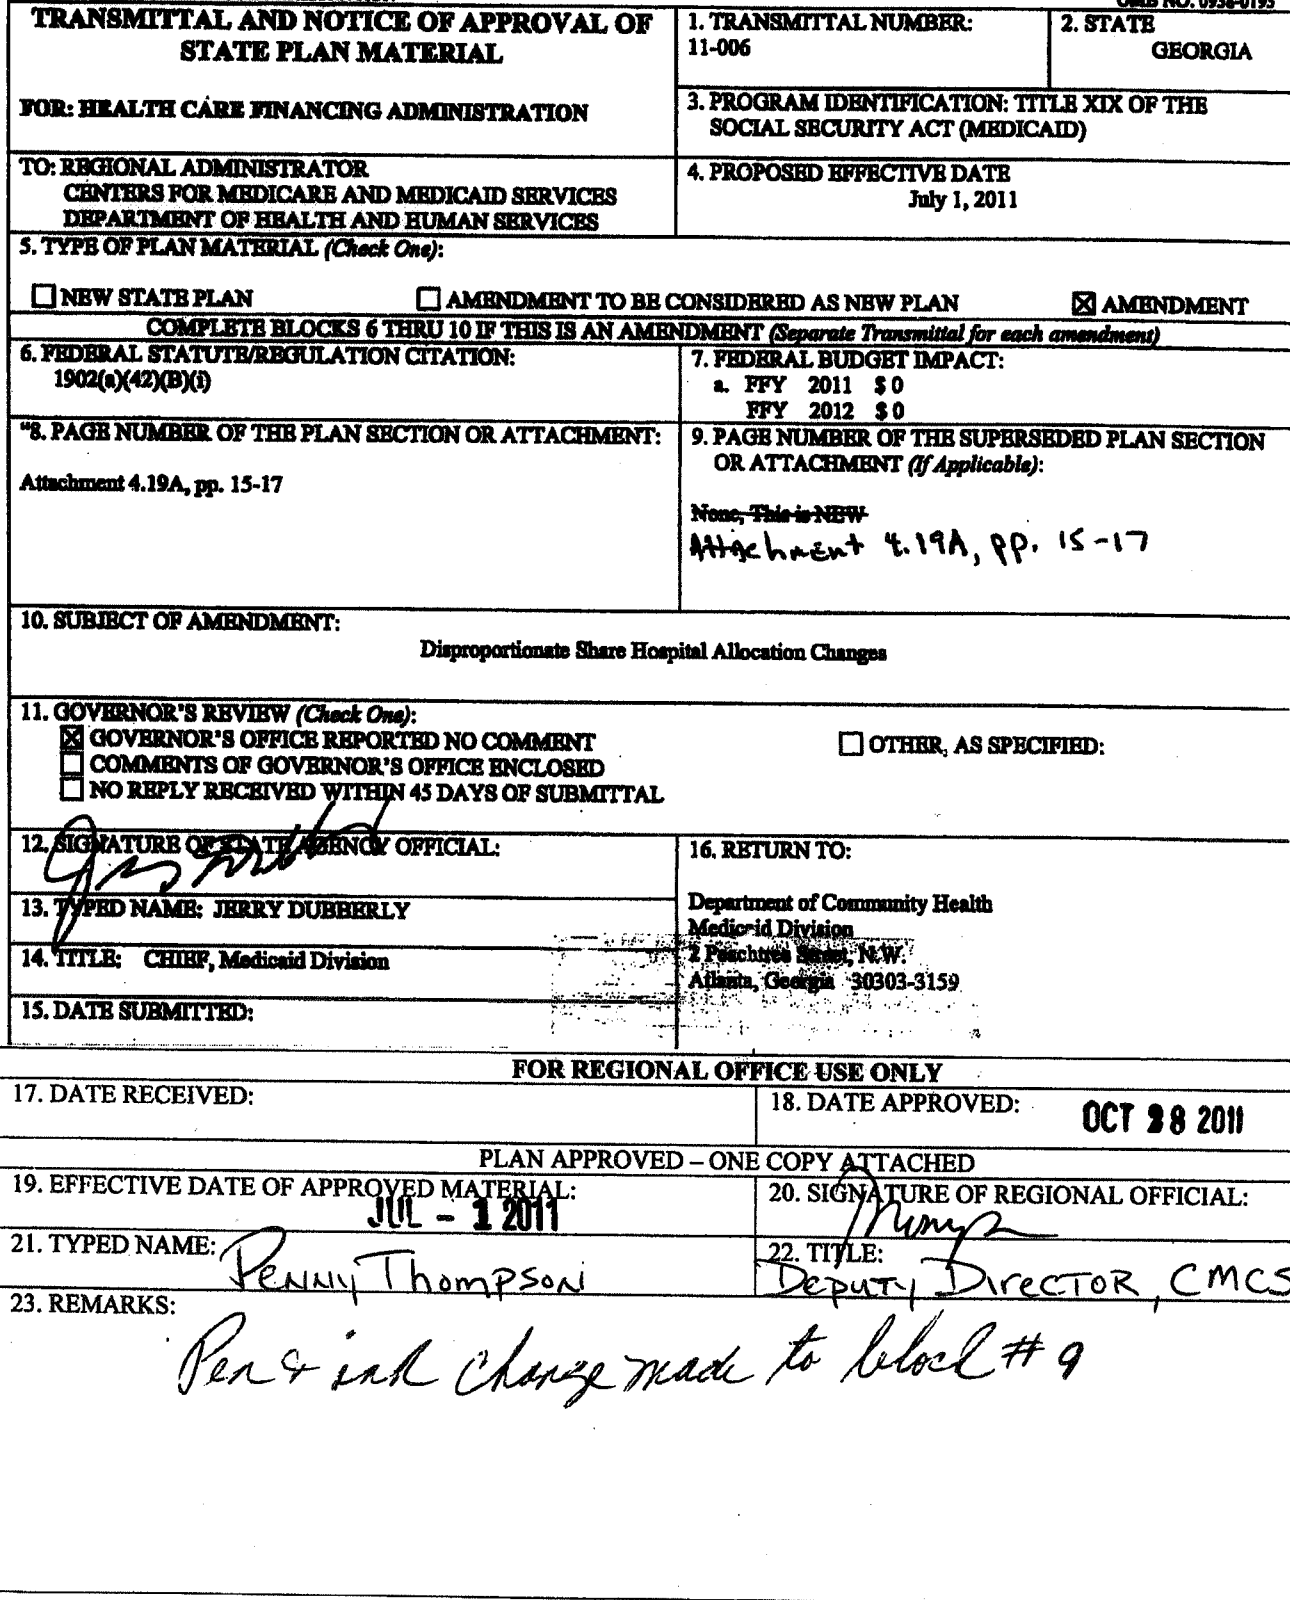 OMB NO. 0938-0193
TRANSMITTAL AND NOTICE OF APPROVAL OF
STATE PLAN MATERIAL
FOR: HEALTH CARE FINANCING ADMINISTRATION
1. TRANSMITTAL NUMBER:
11-006
2. STATE
GEORGIA
3. PROGRAM IDENTIFICATION: TITLE XIX OF THE
SOCIAL SECURITY ACT (MEDICAID)
TO: REGIONAL ADMINISTRATOR
CENTERS FOR MEDICARE AND MEDICAID SERVICES
DEPARTMENT OF HEALTH AND HUMAN SERVICES
4. PROPOSED EFFECTIVE DATE
July 1, 2011
5. TYPE OF PLAN MATERIAL (Check One):
☐ NEW STATE PLAN ☐ AMENDMENT TO BE CONSIDERED AS NEW PLAN ☒ AMENDMENT
COMPLETE BLOCKS 6 THRU 10 IF THIS IS AN AMENDMENT (Separate Transmittal for each amendment)
6. FEDERAL STATUTE/REGULATION CITATION:
1902(a)(42)(B)(i)
7. FEDERAL BUDGET IMPACT:
a. FFY 2011 $ 0
FFY 2012 $ 0
"8. PAGE NUMBER OF THE PLAN SECTION OR ATTACHMENT:
Attachment 4.19A, pp. 15-17
9. PAGE NUMBER OF THE SUPERSEDED PLAN SECTION
OR ATTACHMENT (If Applicable):
None, This is NEW
Attachment 4.19A, pp. 15-17
10. SUBJECT OF AMENDMENT:
Disproportionate Share Hospital Allocation Changes
11. GOVERNOR'S REVIEW (Check One):
☒ GOVERNOR'S OFFICE REPORTED NO COMMENT
☐ COMMENTS OF GOVERNOR'S OFFICE ENCLOSED
☐ NO REPLY RECEIVED WITHIN 45 DAYS OF SUBMITTAL
☐ OTHER, AS SPECIFIED:
12. SIGNATURE OF STATE AGENCY OFFICIAL:
13. TYPED NAME: JERRY DUBBERLY
14. TITLE: CHIEF, Medicaid Division
15. DATE SUBMITTED:
16. RETURN TO:
Department of Community Health
Medicaid Division
2 Peachtree Street, N.W.
Atlanta, Georgia 30303-3159
FOR REGIONAL OFFICE USE ONLY
17. DATE RECEIVED:
18. DATE APPROVED: OCT 28 2011
PLAN APPROVED – ONE COPY ATTACHED
19. EFFECTIVE DATE OF APPROVED MATERIAL:
JUL - 1 2011
20. SIGNATURE OF REGIONAL OFFICIAL:
21. TYPED NAME: Penny Thompson
22. TITLE:
Deputy Director, CMCS
23. REMARKS:
Pen & ink change made to block # 9